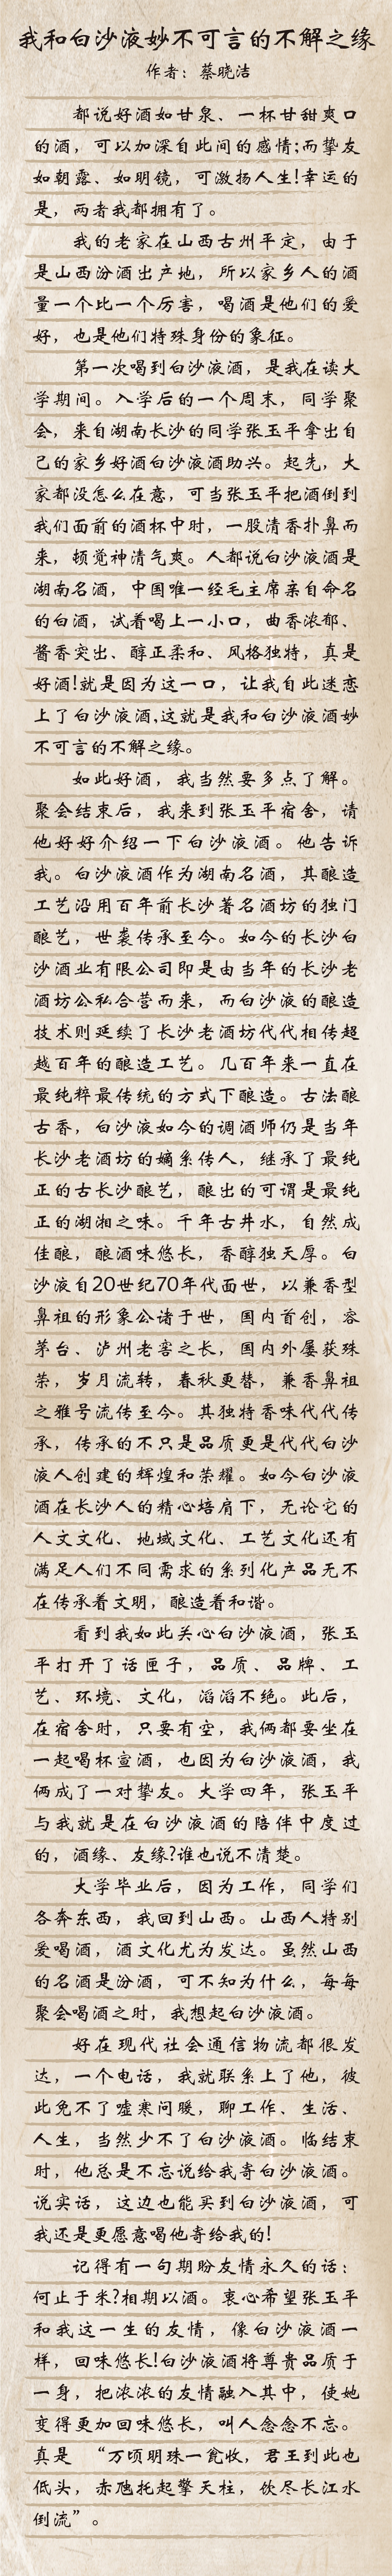 我和白沙液妙不可言的不解之缘
作者：蔡晓洁
都说好酒如甘泉、一杯甘甜爽口
的酒，可以加深自此间的感情;而挚友
如朝露、如明镜，可激扬人生!幸运的
是，两者我都拥有了。
我的老家在山西古州平定，由于
是山西汾酒出产地，所以家乡人的酒
量一个比一个厉害，喝酒是他们的爱
好，也是他们特殊身份的象征。
第一次喝到白沙液酒，是我在读大
学期间。入学后的一个周末，同学聚
会，来自湖南长沙的同学张玉平拿出自
己的家乡好酒白沙液酒助兴。起先，大
家都没怎么在意，可当张玉平把酒倒到
我们面前的酒杯中时，一股清香扑鼻而
来，顿觉神清气爽。人都说白沙液酒是
湖南名酒，中国唯一经毛主席亲自命名
的白酒，试着喝上一小口，曲香浓郁、
酱香突出、醇正柔和、风格独特，真是
好酒!就是因为这一口，让我自此迷恋
上了白沙液酒.这就是我和白沙液酒妙
不可言的不解之缘。
如此好酒，我当然要多点了解。
聚会结束后，我来到张玉平宿舍，请
他好好介绍一下白沙液酒。他告诉
我。白沙液酒作为湖南名酒，其酿造
工艺沿用百年前长沙著名酒坊的独门
酿艺，世袭传承至今。如今的长沙白
沙酒业有限公司即是由当年的长沙老
酒坊公私合营而来，而白沙液的酿造
技术则延续了长沙老酒坊代代相传超
越百年的酿造工艺。几百年来一直在
最纯粹最传统的方式下酿造。古法酿
古香，白沙液如今的调酒师仍是当年
长沙老酒坊的嫡系传人，继承了最纯
正的古长沙酿艺，酿出的可谓是最纯
正的湖湘之味。千年古井水，自然成
佳酿，酿酒味悠长，香醇独天厚。白
沙液自20世纪70年代面世，以兼香型
鼻祖的形象公诸于世，国内首创，容
茅台、泸州老窖之长，国内外屡获殊
荣，岁月流转，春秋更替，兼香鼻祖
之雅号流传至今。其独特香味代代传
承，传承的不只是品质更是代代白沙
液人创建的辉煌和荣耀。如今白沙液
酒在长沙人的精心培肩下，无论它的
人文文化、地域文化、工艺文化还有
满足人们不同需求的系列化产品无不
在传承着文明，酿造着和谐。
看到我如此关心白沙液酒，张玉
平打开了话匣子，品质、品牌、工
艺、环境、文化，滔滔不绝。此后，
在宿舍时，只要有空，我俩都要坐在
一起喝杯宣酒，也因为白沙液酒，我
俩成了一对挚友。大学四年，张玉平
与我就是在白沙液酒的陪伴中度过
的，酒缘、友缘?谁也说不清楚。
大学毕业后，因为工作，同学们
各奔东西，我回到山西。山西人特别
爱喝酒，酒文化尤为发达。虽然山西
的名酒是汾酒，可不知为什么，每每
聚会喝酒之时，我想起白沙液酒。
好在现代社会通信物流都很发
达，一个电话，我就联系上了他，彼
此免不了嘘寒问暖，聊工作、生活、
人生，当然少不了白沙液酒。临结束
时，他总是不忘说给我寄白沙液酒。
说实话，这边也能买到白沙液酒，可
我还是更愿意喝他寄给我的!
记得有一句期盼友情永久的话：
何止于米?相期以酒。衷心希望张玉平
和我这一生的友情，像白沙液酒一
样，回味悠长!白沙液酒将尊贵品质于
一身，把浓浓的友情融入其中，使她
变得更加回味悠长，叫人念念不忘。
真是 “万顷明珠一瓮收，君王到此也
低头，赤虺托起擎天柱，饮尽长江水
倒流”。